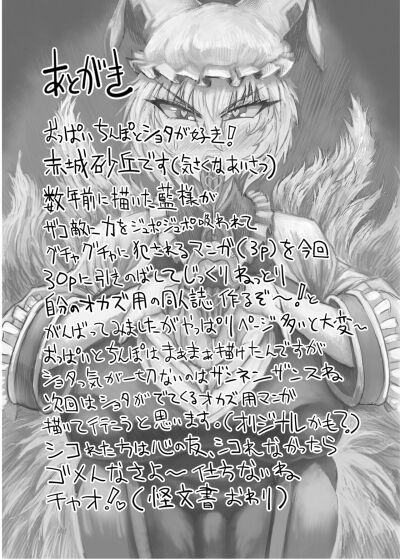 あとがき
おっぱいちんぽとショタが好き!
赤城砂丘です(気さくなあいさつ)
数年前に描いた藍様が
ザコ敵に力をジュポジュポ吸われて
グチャグチャに犯されるマンガ(3p)を今回
30pに引きのばしてじっくりねっとり
自分のオカズ用の同人誌作るぞ〜!と
がんばってみましたがやっぱりページ多いと大変〜
おっぱいとちんぽはまぁまぁ描けたんですが
ショタっ気が一切ないのはザンネンザンスね、
次回はショタがでてくるオカズ用マンガが
描けて行こうと思います。(オリジナルかも?)
シコれたちは心の友、シコれなかったら
ゴメんなさよ〜仕方ないね
チャオ!♡(怪文書おわり)